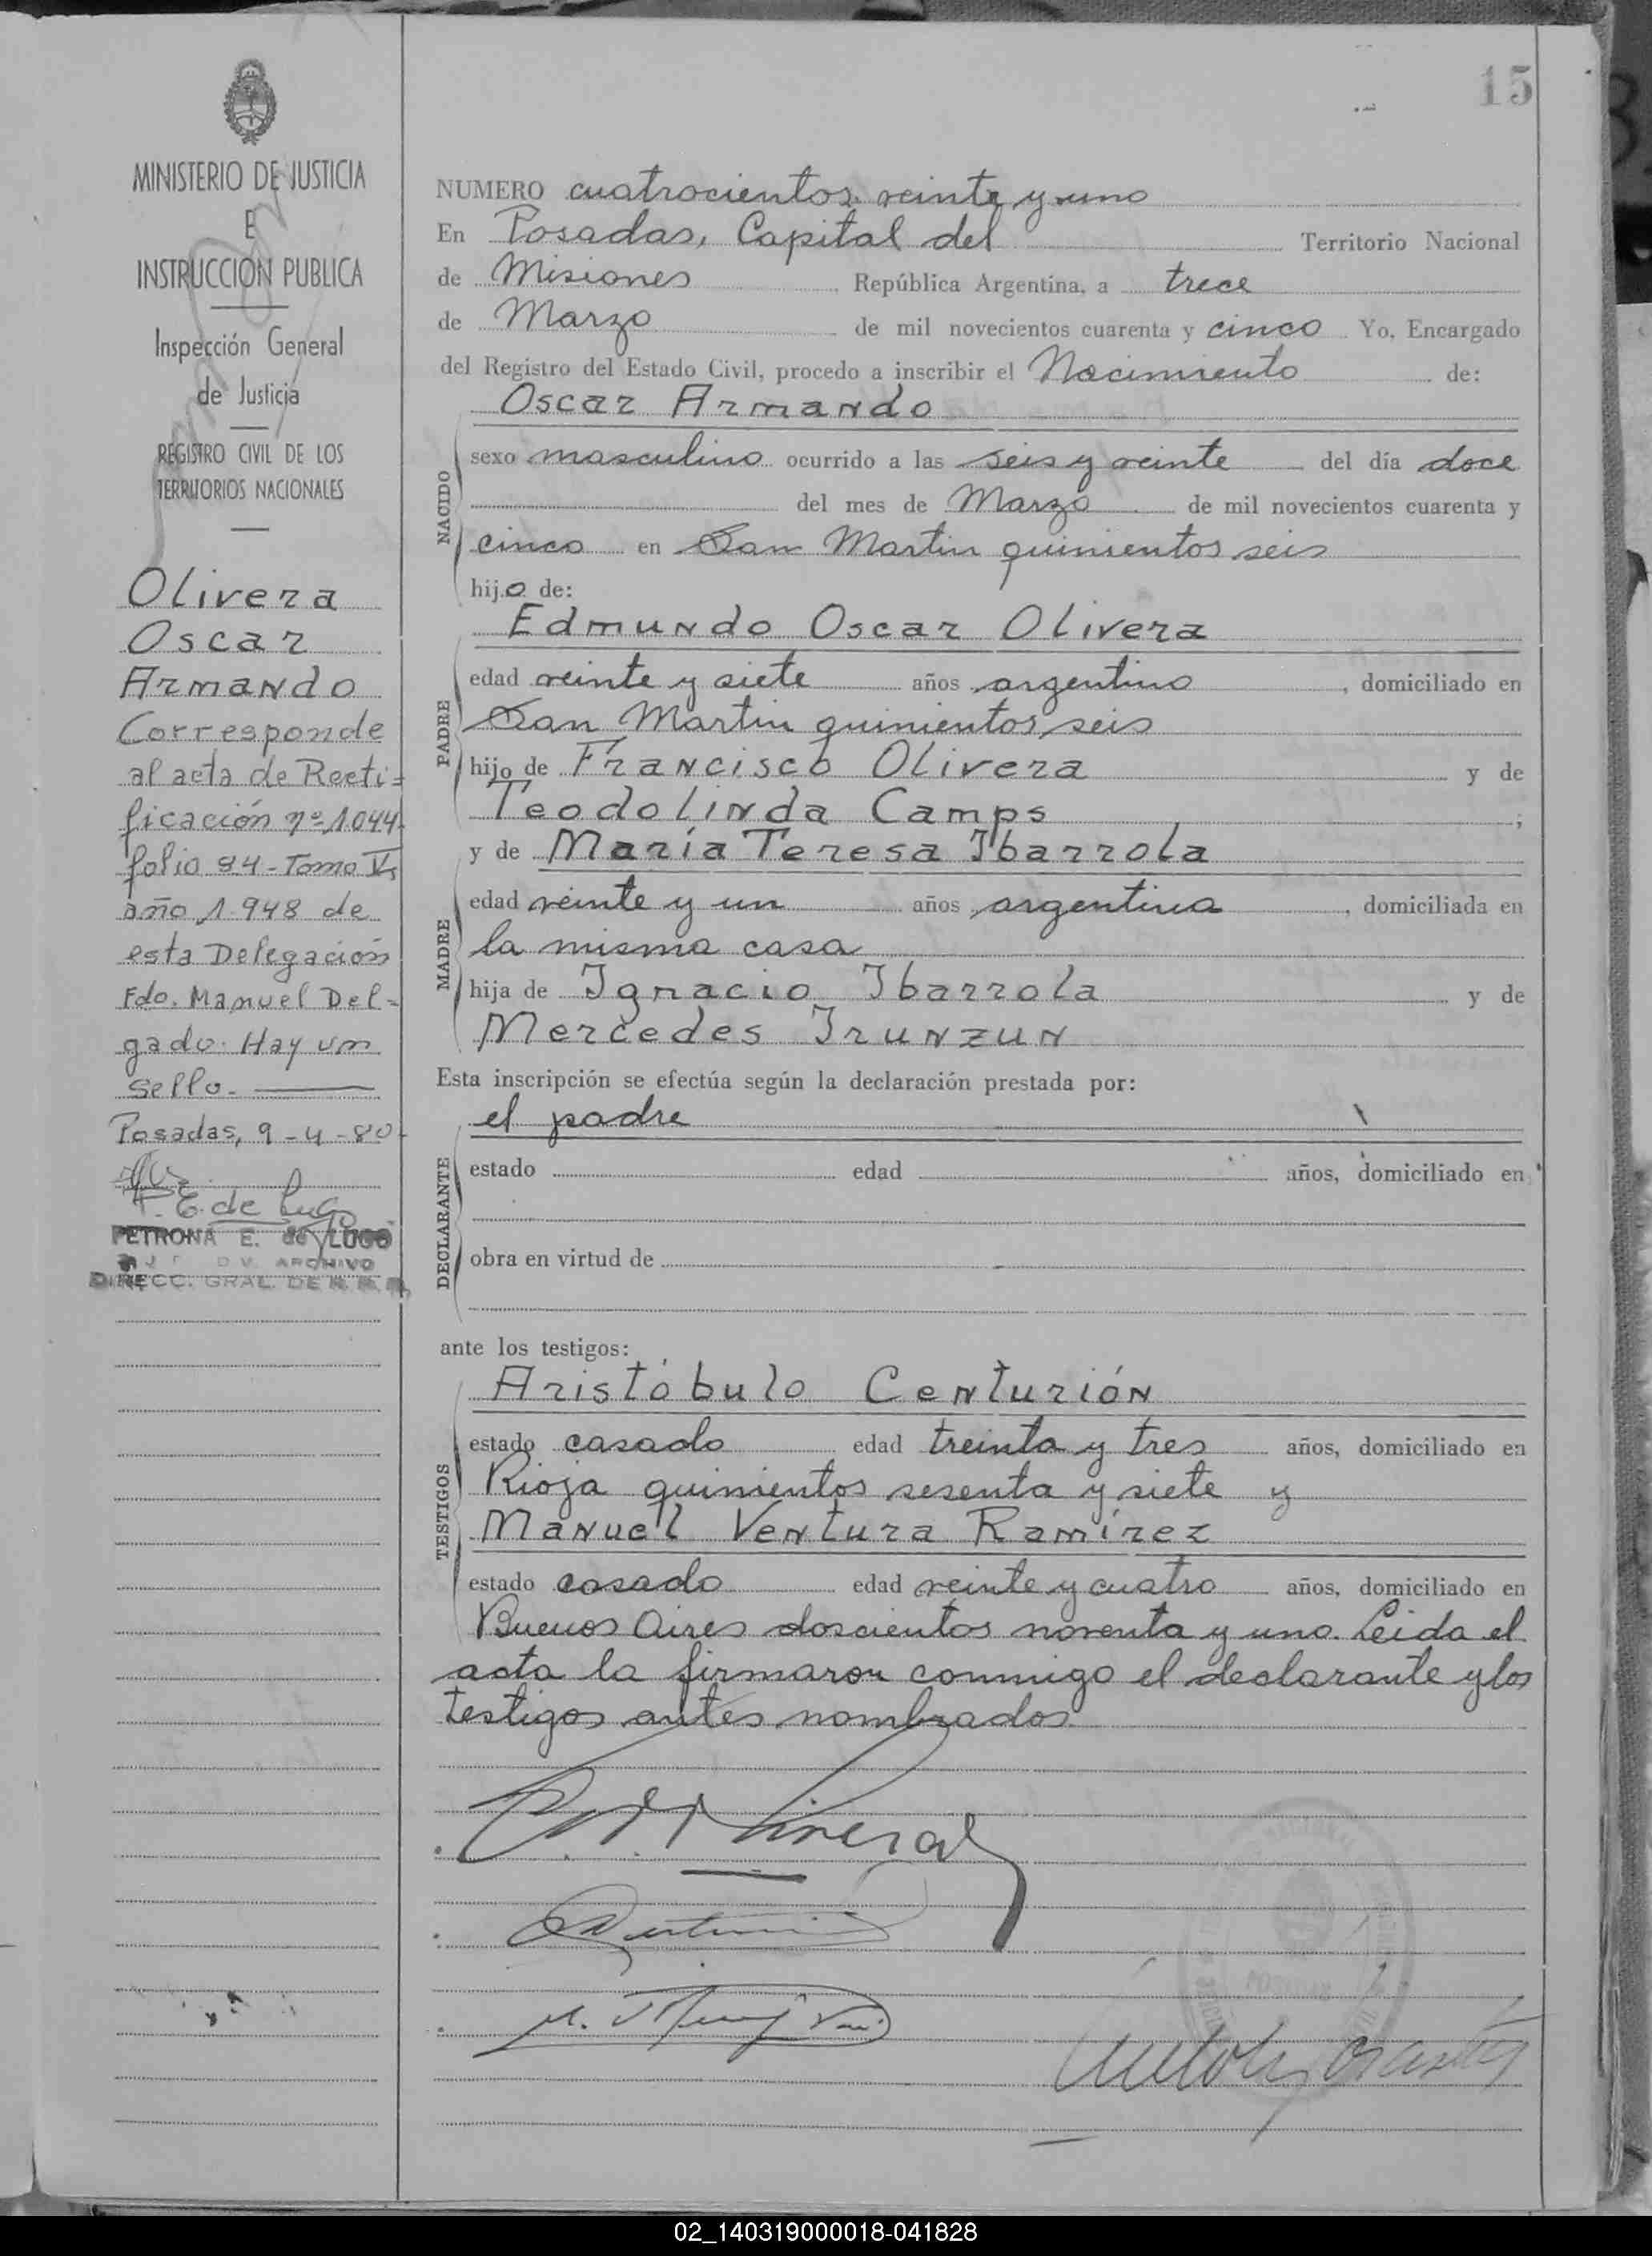 15
MINISTERIO DE JUSTICIA
E
INSTRUCCION PUBLICA
Inspección General
de Justicia
REGISTRO CIVIL DE LOS
TERRITORIOS NACIONALES
Olivera
Oscar
Armando
Corresponde
al acta de Recti=
ficación nº 1044
folio 94 - Tomo V
año 1948 de
esta Delegación
Fdo. Manuel Del=
gado. Hay un
sello.
Posadas, 9-4-80
E. de Lugo
PETRONA E. de LUGO
ARCHIVO
DIRECC. GRAL. DE
NUMERO cuatrocientos veinte y uno
En Posadas, Capital del Territorio Nacional
de Misiones República Argentina, a trece
de Marzo de mil novecientos cuarenta y cinco Yo, Encargado
del Registro del Estado Civil, procedo a inscribir el Nacimiento de:
Oscar Armando
NACIDO
sexo masculino ocurrido a las seis y veinte del día doce
del mes de Marzo de mil novecientos cuarenta y
cinco en San Martin quinientos seis
hijo de:
Edmundo Oscar Olivera
PADRE
edad veinte y siete años argentino, domiciliado en
San Martin quinientos seis
hijo de Francisco Olivera y de
Teodolinda Camps;
y de María Teresa Ibarrola
MADRE
edad veinte y un años argentina, domiciliada en
la misma casa
hija de Ignacio Ibarrola y de
Mercedes Irunzun
Esta inscripción se efectúa según la declaración prestada por:
el padre
DECLARANTE
estado edad años, domiciliado en
obra en virtud de
ante los testigos:
Aristóbulo Centurión
TESTIGOS
estado casado edad treinta y tres años, domiciliado en
Rioja quinientos sesenta y siete y
Manuel Ventura Ramírez
estado casado edad veinte y cuatro años, domiciliado en
Buenos Aires doscientos noventa y uno. Leida el
acta la firmaron conmigo el declarante y los
testigos antes nombrados.
02_140319000018-041828